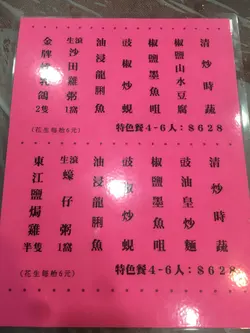 清炒時蔬
椒鹽山水豆腐
椒鹽墨魚咀
豉椒炒蜆
油浸龍脷魚
生滾沙田雞粥1窩
金牌乳鴿2隻
特色餐4-6人：8628
(花生每枱6元)
清炒時蔬
豉油皇炒麵
椒鹽墨魚咀
豉椒炒蜆
油浸龍脷魚
生滾蠔仔粥1窩
東江鹽焗雞半隻
特色餐4-6人：8628
(花生每枱6元)